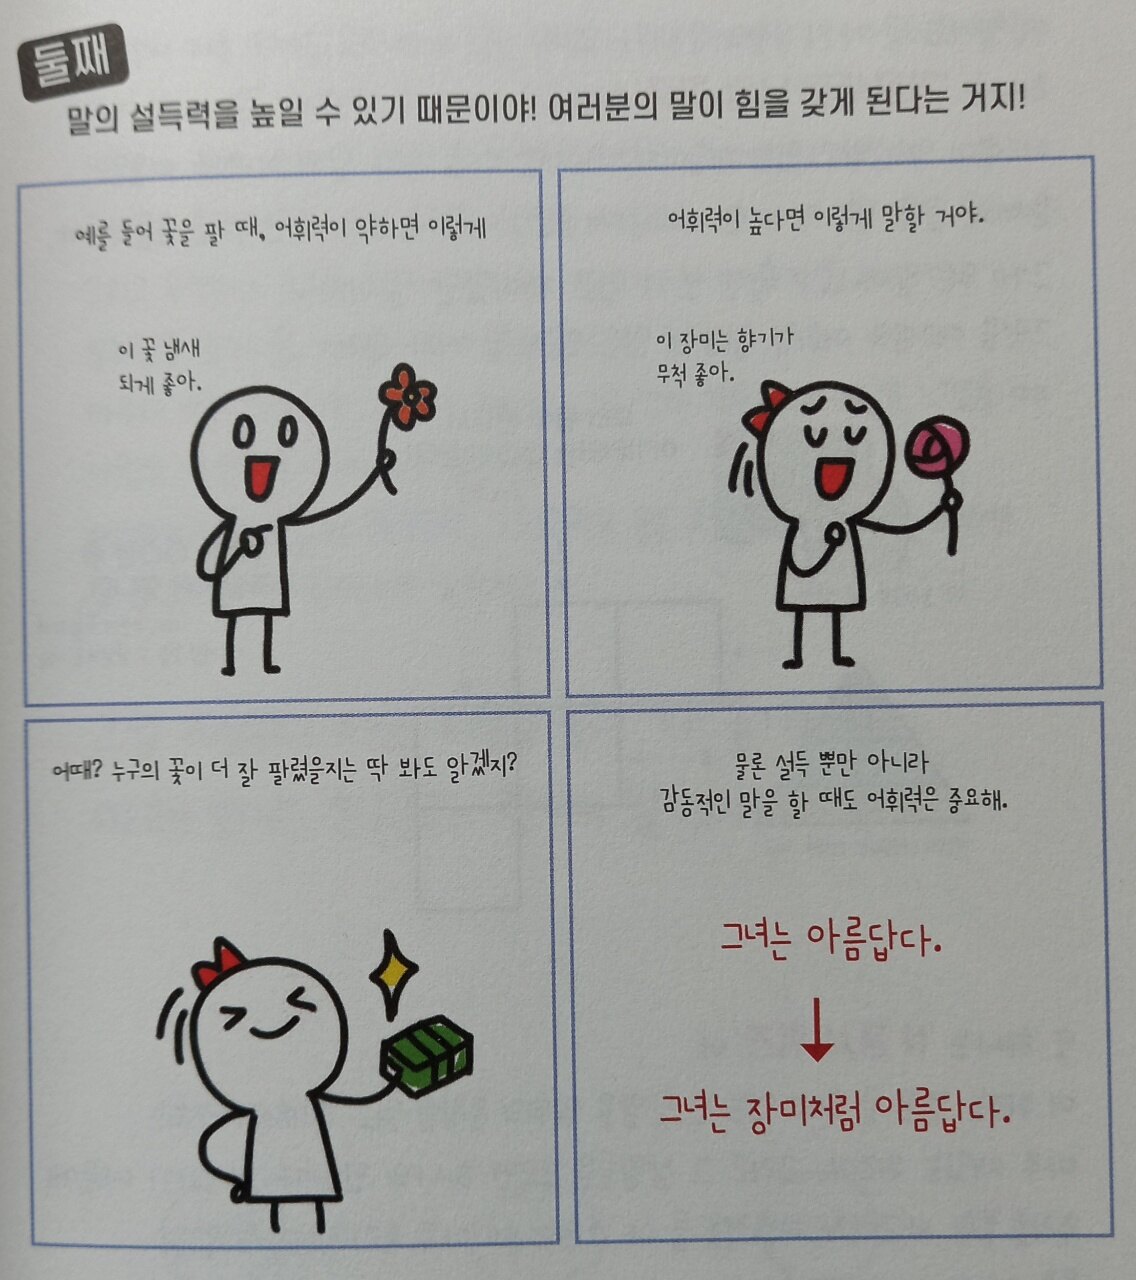 둘째
말의 설득력을 높일 수 있기 때문이야! 여러분의 말이 힘을 갖게 된다는 거지!
예를 들어 꽃을 팔 때, 어휘력이 약하면 이렇게
이 꽃 냄새
되게 좋아.
어휘력이 높다면 이렇게 말할 거야.
이 장미는 향기가
무척 좋아.
어때? 누구의 꽃이 더 잘 팔렸을지는 딱 봐도 알겠지?
물론 설득 뿐만 아니라
감동적인 말을 할 때도 어휘력은 중요해.
그녀는 아름답다.
그녀는 장미처럼 아름답다.